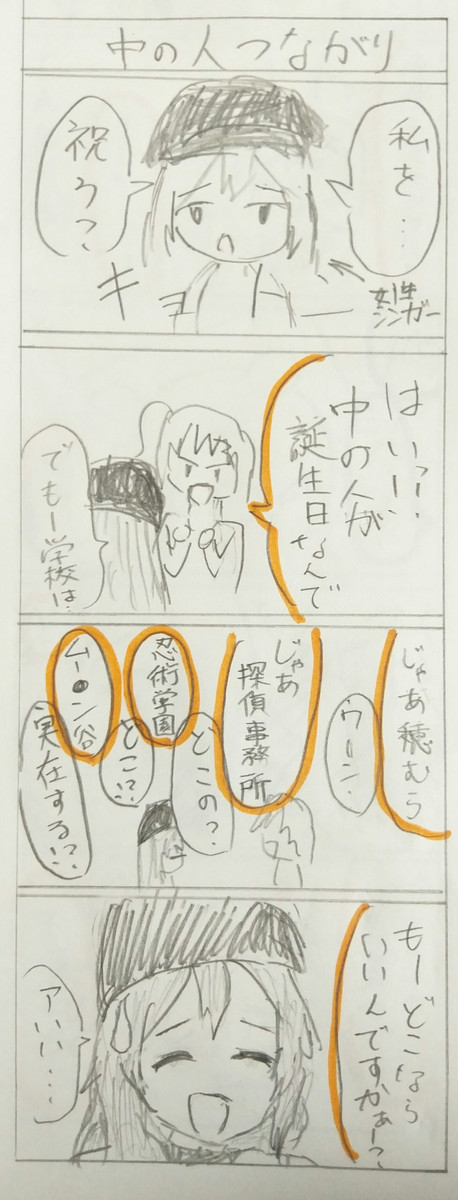 中の人つながり
私を…
祝う?
キョトー
女性
シンガー
はいっ!!
中の人が
誕生日なんで
でもー学校は…
じゃあ穂むら
ウーン…
じゃあ
探偵事務所
どこの?
忍術学園
どこ!?
ムー●ン谷
実在する!?
もーどこなら
いいんですかぁー?
アハハ…